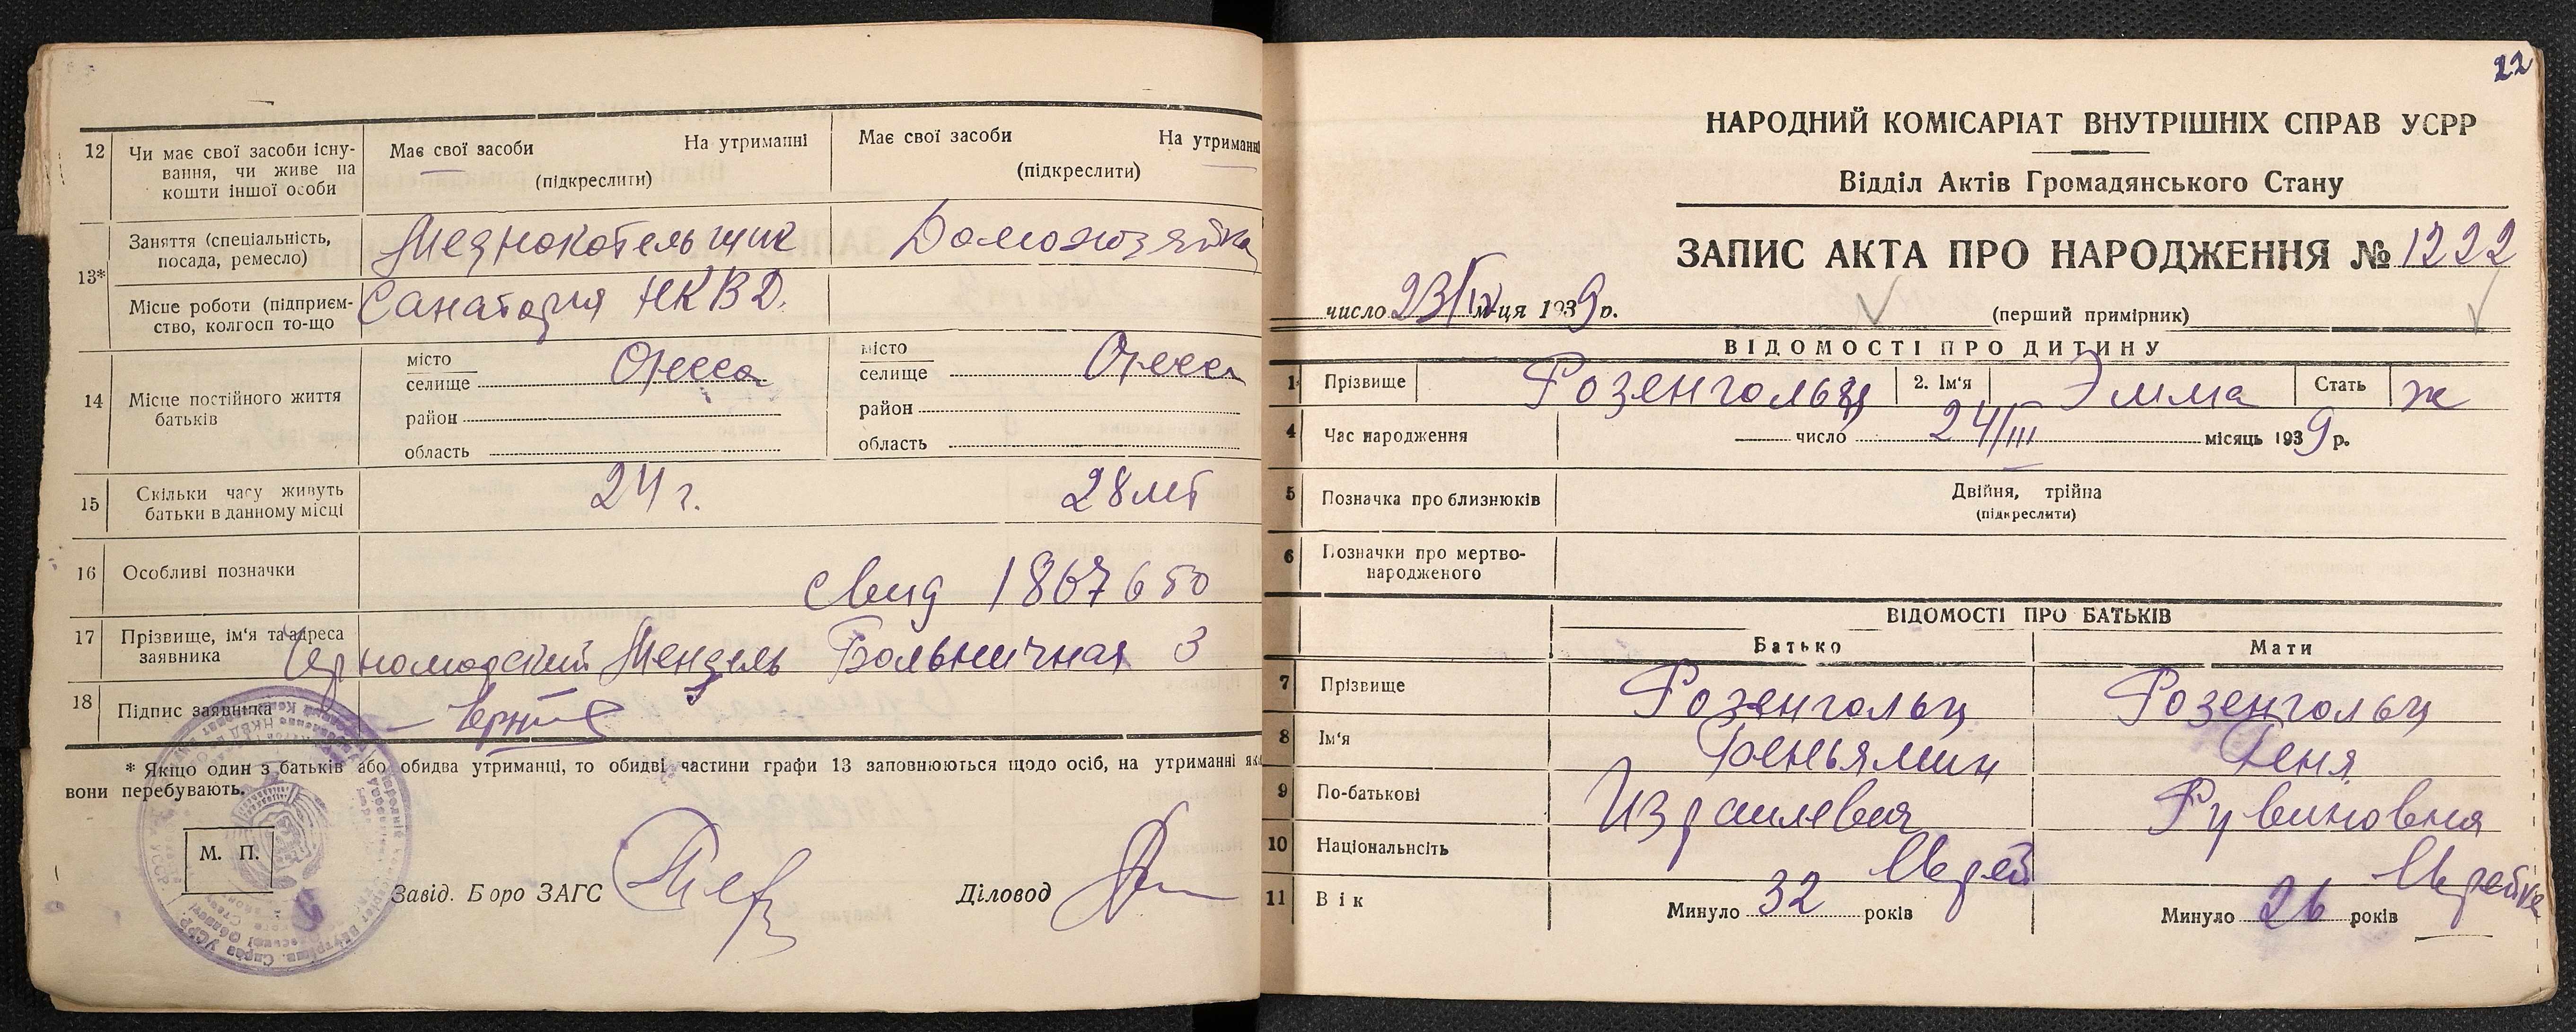 12 Чи має свої засоби існування, чи живе на кошти іншої особи
Має свої засоби На утриманні
(підкреслити)
Має свої засоби На утриманні
(підкреслити)
13*
Заняття (спеціальність, посада, ремесло) Меднокотельщик Домохозяйка
Місце роботи (підприємство, колгосп то-що Санатория НКВД.
14 Місце постійного життя батьків
місто
селище Одесса
район
область
місто
селище Одесса
район
область
15 Скільки часу живуть батьки в данному місці 24 г. 28 лет
16 Особливі позначки свид 1867650
17 Прізвище, ім'я та адреса заявника Черноморский Мендель Больничная 3
18 Підпис заявника
* Якщо один з батьків або обидва утриманці, то обидві частини графи 13 заповнюються щодо осіб, на утриманні як
вони перебувають.
М. П.
Завід. Бюро ЗАГС
Діловод
22
НАРОДНИЙ КОМІСАРІАТ ВНУТРІШНІХ СПРАВ УСРР
Відділ Актів Громадянського Стану
ЗАПИС АКТА ПРО НАРОДЖЕННЯ № 1222
число 23/IV м-ця 1939 р.
(перший примірник)
ВІДОМОСТІ ПРО ДИТИНУ
1 Прізвище Розенгольц 2. Ім'я Эмма Стать ж
4 Час народження число 24/III місяць 1939 р.
5 Позначка про близнюків Двійня, трійна
(підкреслити)
6 Позначки про мертвонародженого
ВІДОМОСТІ ПРО БАТЬКІВ
Батько Мати
7 Прізвище Розенгольц Розенгольц
8 Ім'я Беньямин Геня
9 По-батькові Израилевич Рувиновна
10 Національність Иврей Иврейка
11 Вік Минуло 32 років Минуло 26 років